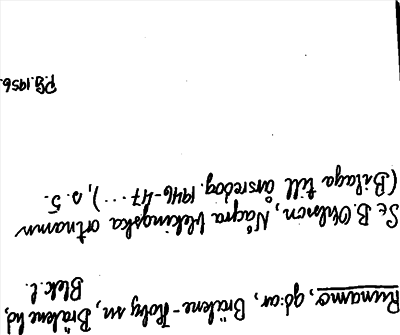 Runamo, gd:ar, Bräkne-Hoby sn, Bräkne hd,
Blek. l.
Se B. Ohlsson, Några blekingska ortnamn
(Bilaga till årsredog. 1946-47 ....), s. 5.
P.G. 1956.